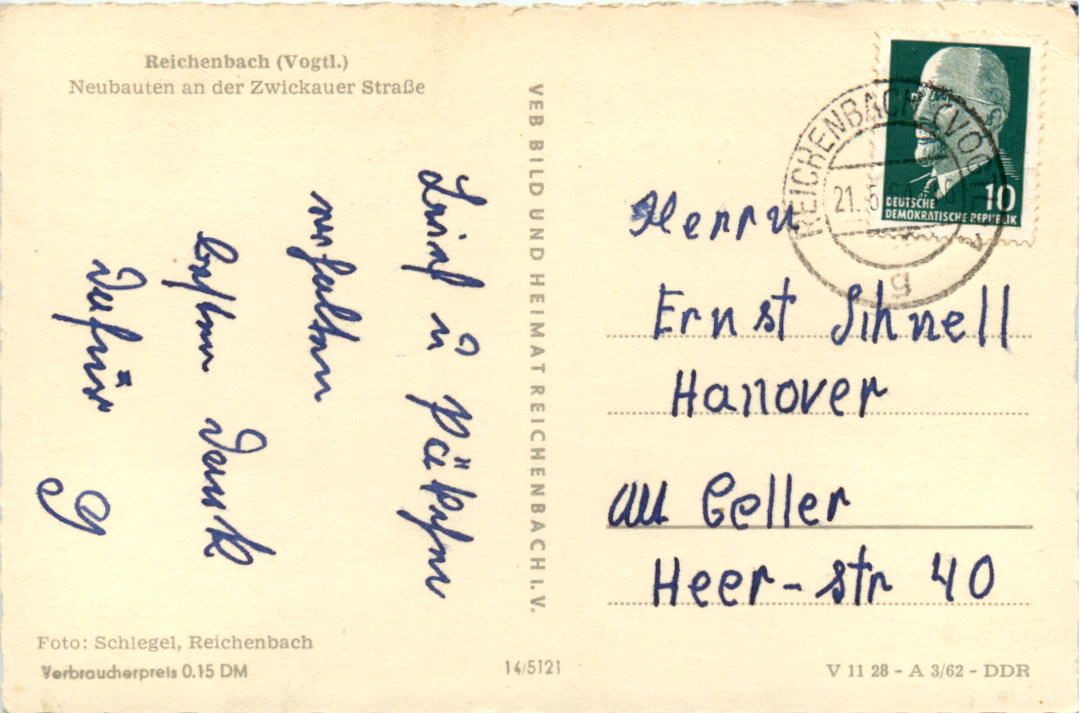 Reichenbach (Vogtl.)
Neubauten an der Zwickauer Straße
Brief u Päkchen
erhalten
besten Dank
dafür
VEB BILD UND HEIMAT REICHENBACH I. V.
REICHENBACH (VOGTL
21. 5
10
DEUTSCHE
DEMOKRATISCHE REPUBLIK
Herrn
Ernst Schnell
Hanover
Geller
Heer-str 40
Foto: Schlegel, Reichenbach
Verbraucherpreis 0.15 DM
14/5121
V 11 28 - A 3/62 - DDR